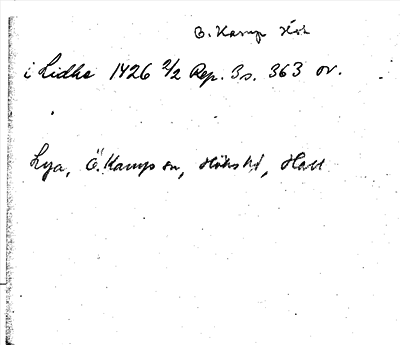 Ö. Kamp Hök
i Lidha 1426 2/2 Rep. 3 s. 363 or.
Lya, Ö. Kamp sn, Höks hd, Hall